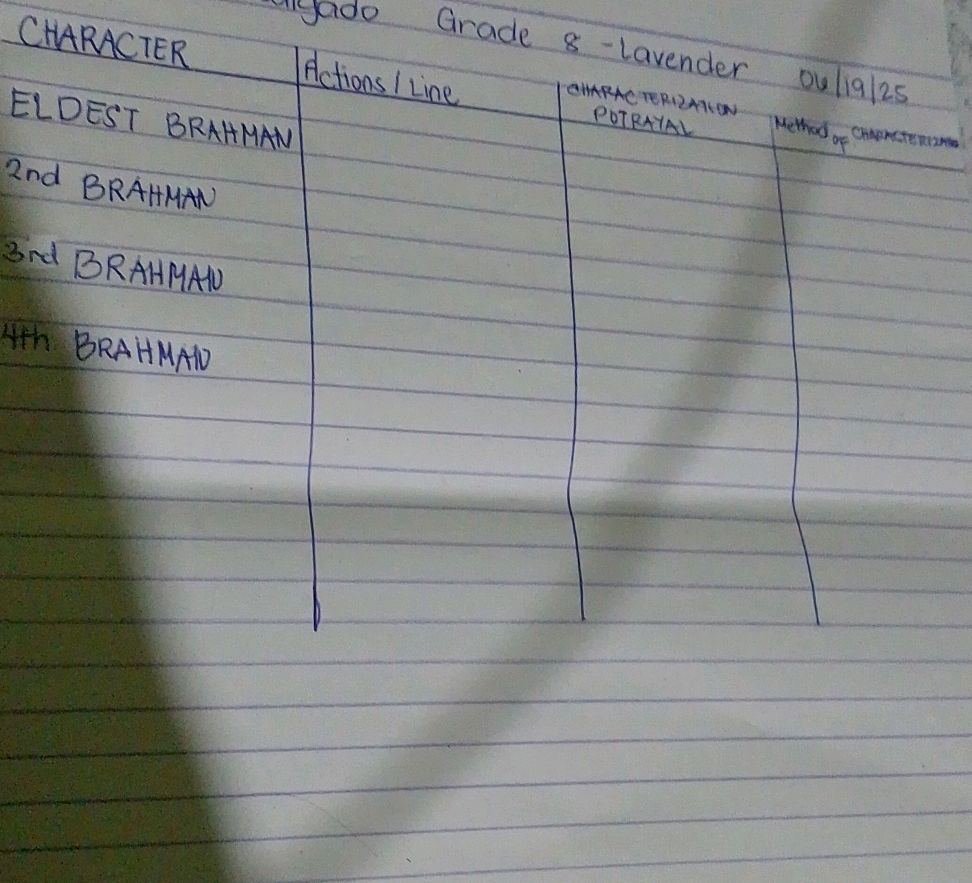 Grade 8 - Lavender 06/19/25
CHARACTER Actions / Line CHARACTERIZATION POTRAYAL Method of CHARACTERIZATION
ELDEST BRAHMAN
2nd BRAHMAN
3rd BRAHMAN
4th BRAHMAN